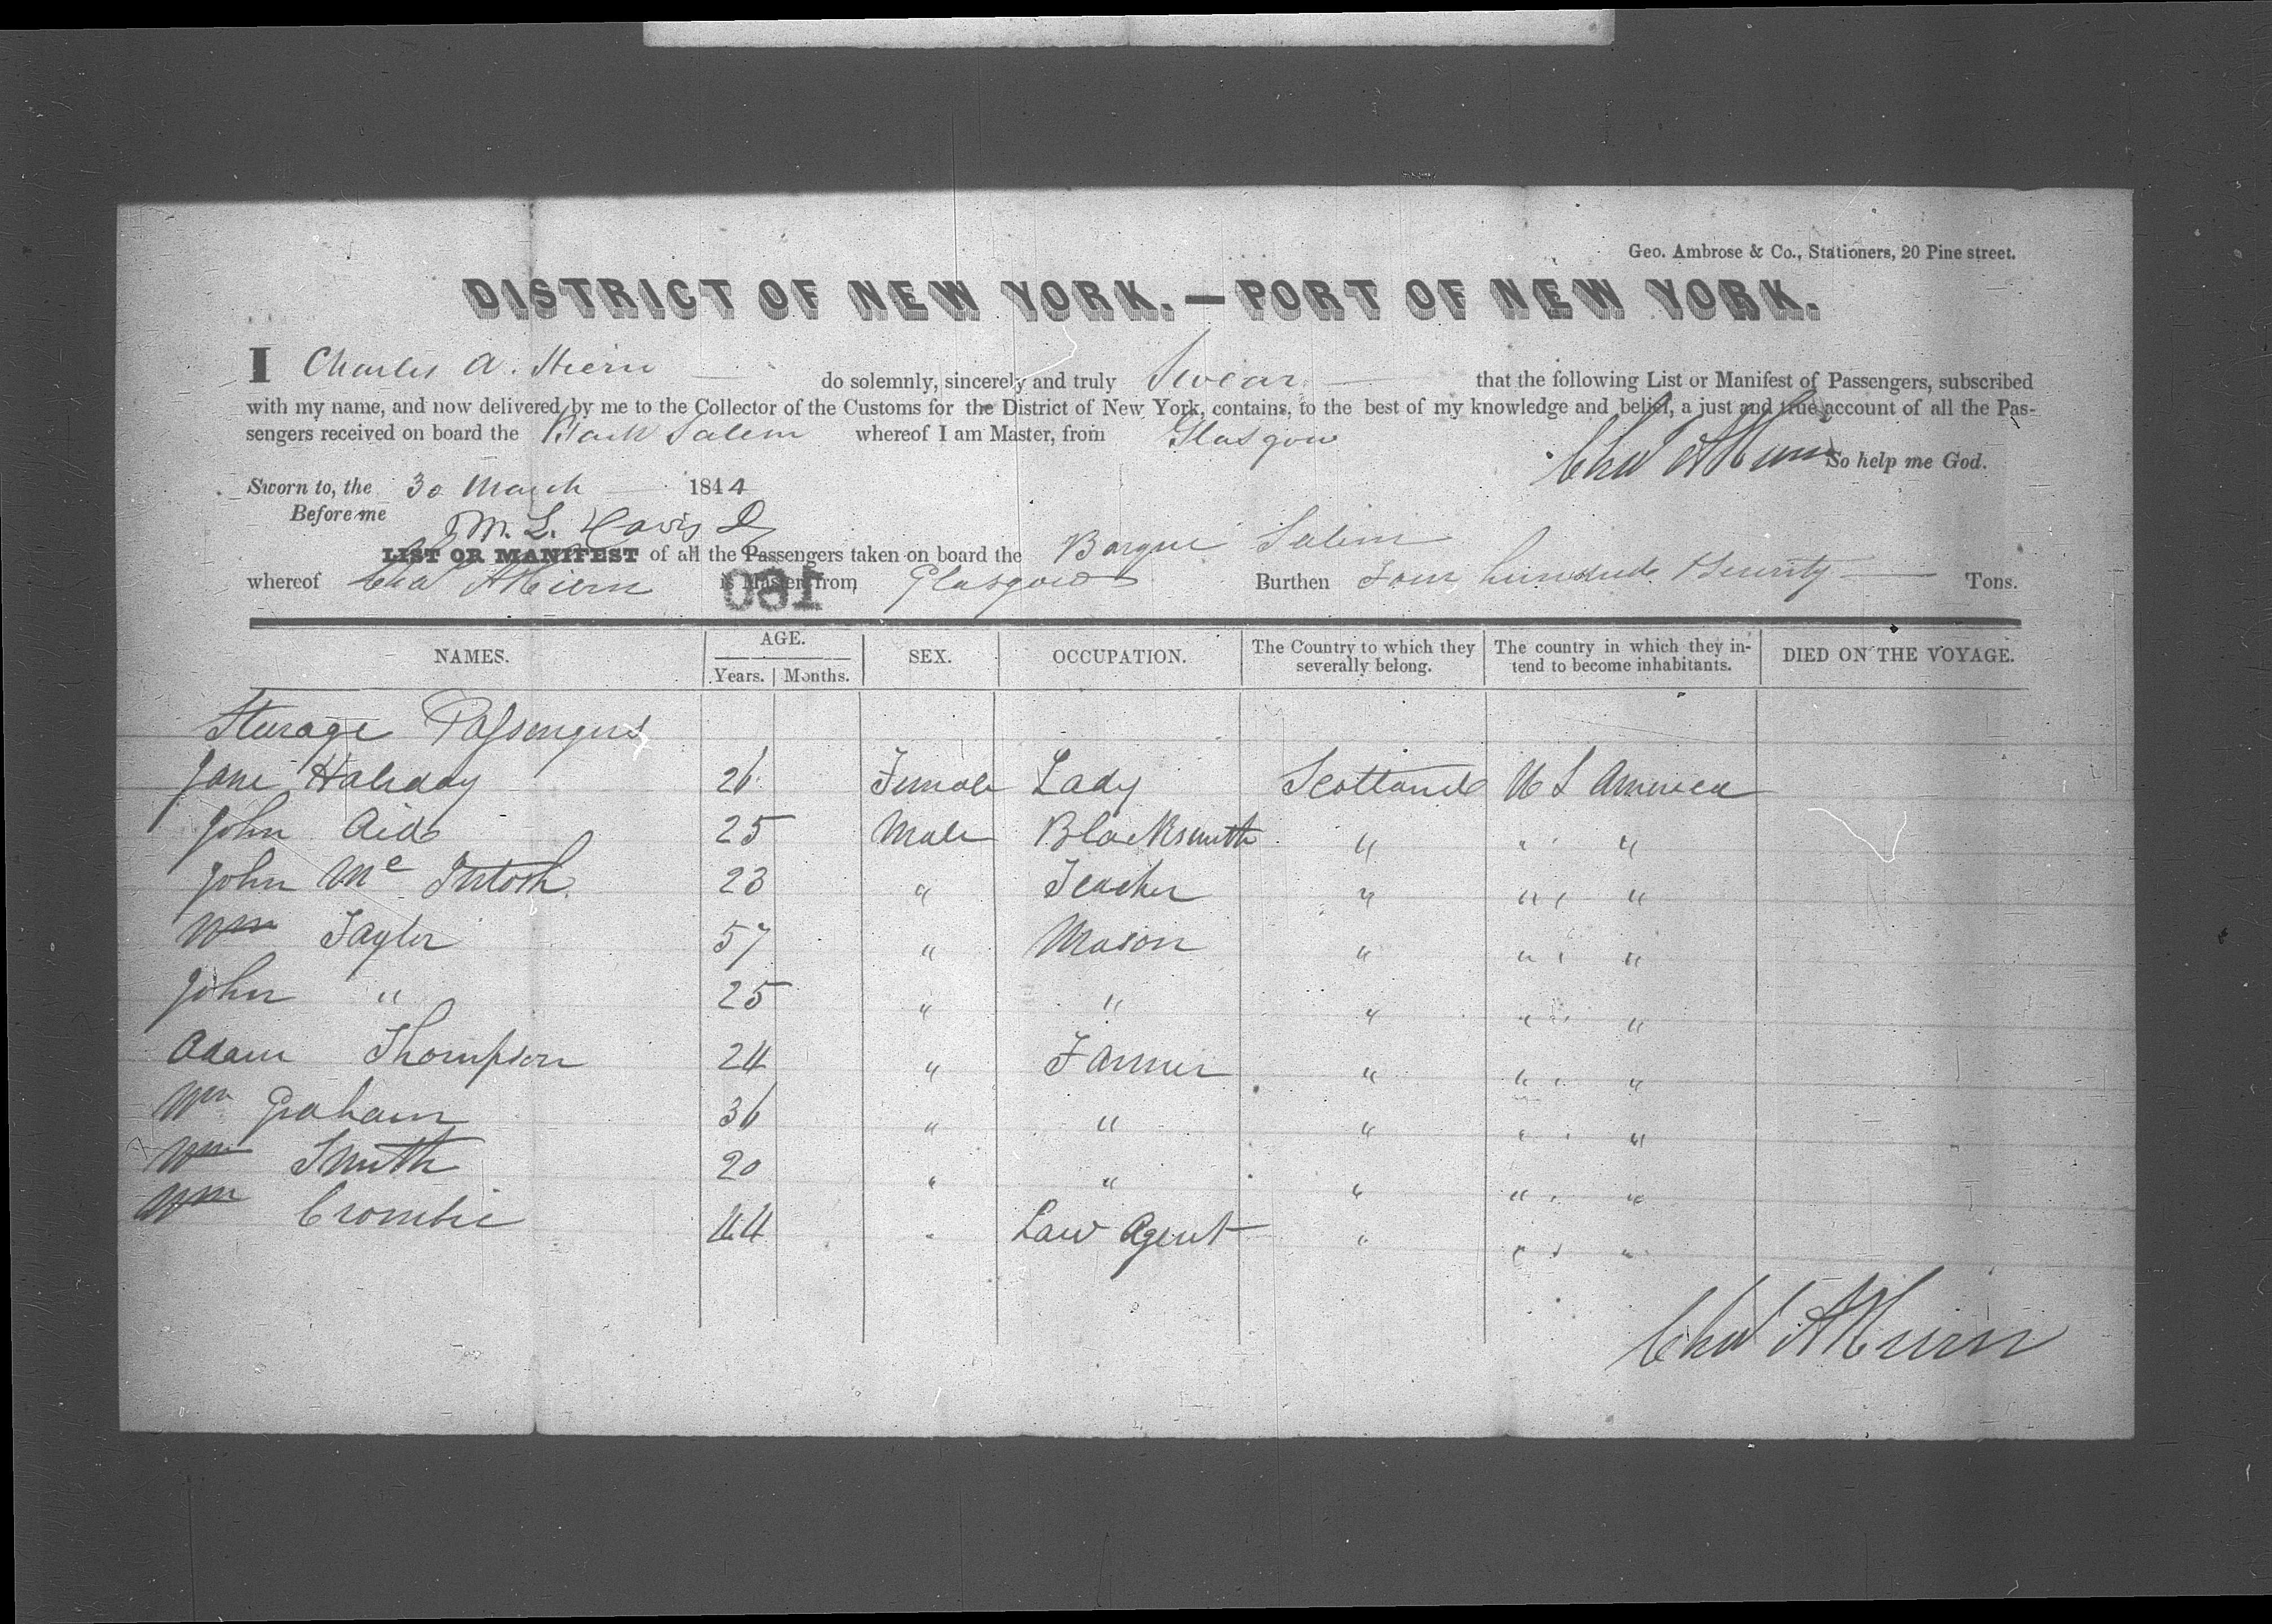 Geo. Ambrose & Co., Stationers, 20 Pine street.
DISTRICT OF NEW YORK.—PORT OF NEW YORK.
I Charles A. Hiern do solemnly, sincerely and truly Swear that the following List or Manifest of Passengers, subscribed
with my name, and now delivered by me to the Collector of the Customs for the District of New York, contains, to the best of my knowledge and belief, a just and true account of all the Pas-
sengers received on board the Bark Salem whereof I am Master, from Glasgow
Chas A Hiern So help me God.
Sworn to, the 30 March 1844
Before me M. L. Davis
LIST OR MANIFEST of all the Passengers taken on board the Barque Salem
whereof Chas A Hiern is Master, from Glasgow Burthen Four hundred Seventy Tons.
180
NAMES. AGE. SEX. OCCUPATION. The Country to which they severally belong. The country in which they in-tend to become inhabitants. DIED ON THE VOYAGE.
Years. Months.
Sturage Passengers
Jane Haliday 26 Female Lady Scotland U S America
John Aid 25 Male Blacksmith " " " "
John Mc Intosh 23 " Teacher " " " "
Wm Tayler 57 " Mason " " " "
John " 25 " " " " " "
Adam Thompson 24 " Farmer " " " "
Wm Graham 36 " " " " " "
Wm Smith 20 " " " " " "
Wm Crombie 44 " Law Agent " " " "
Chas A Hiern